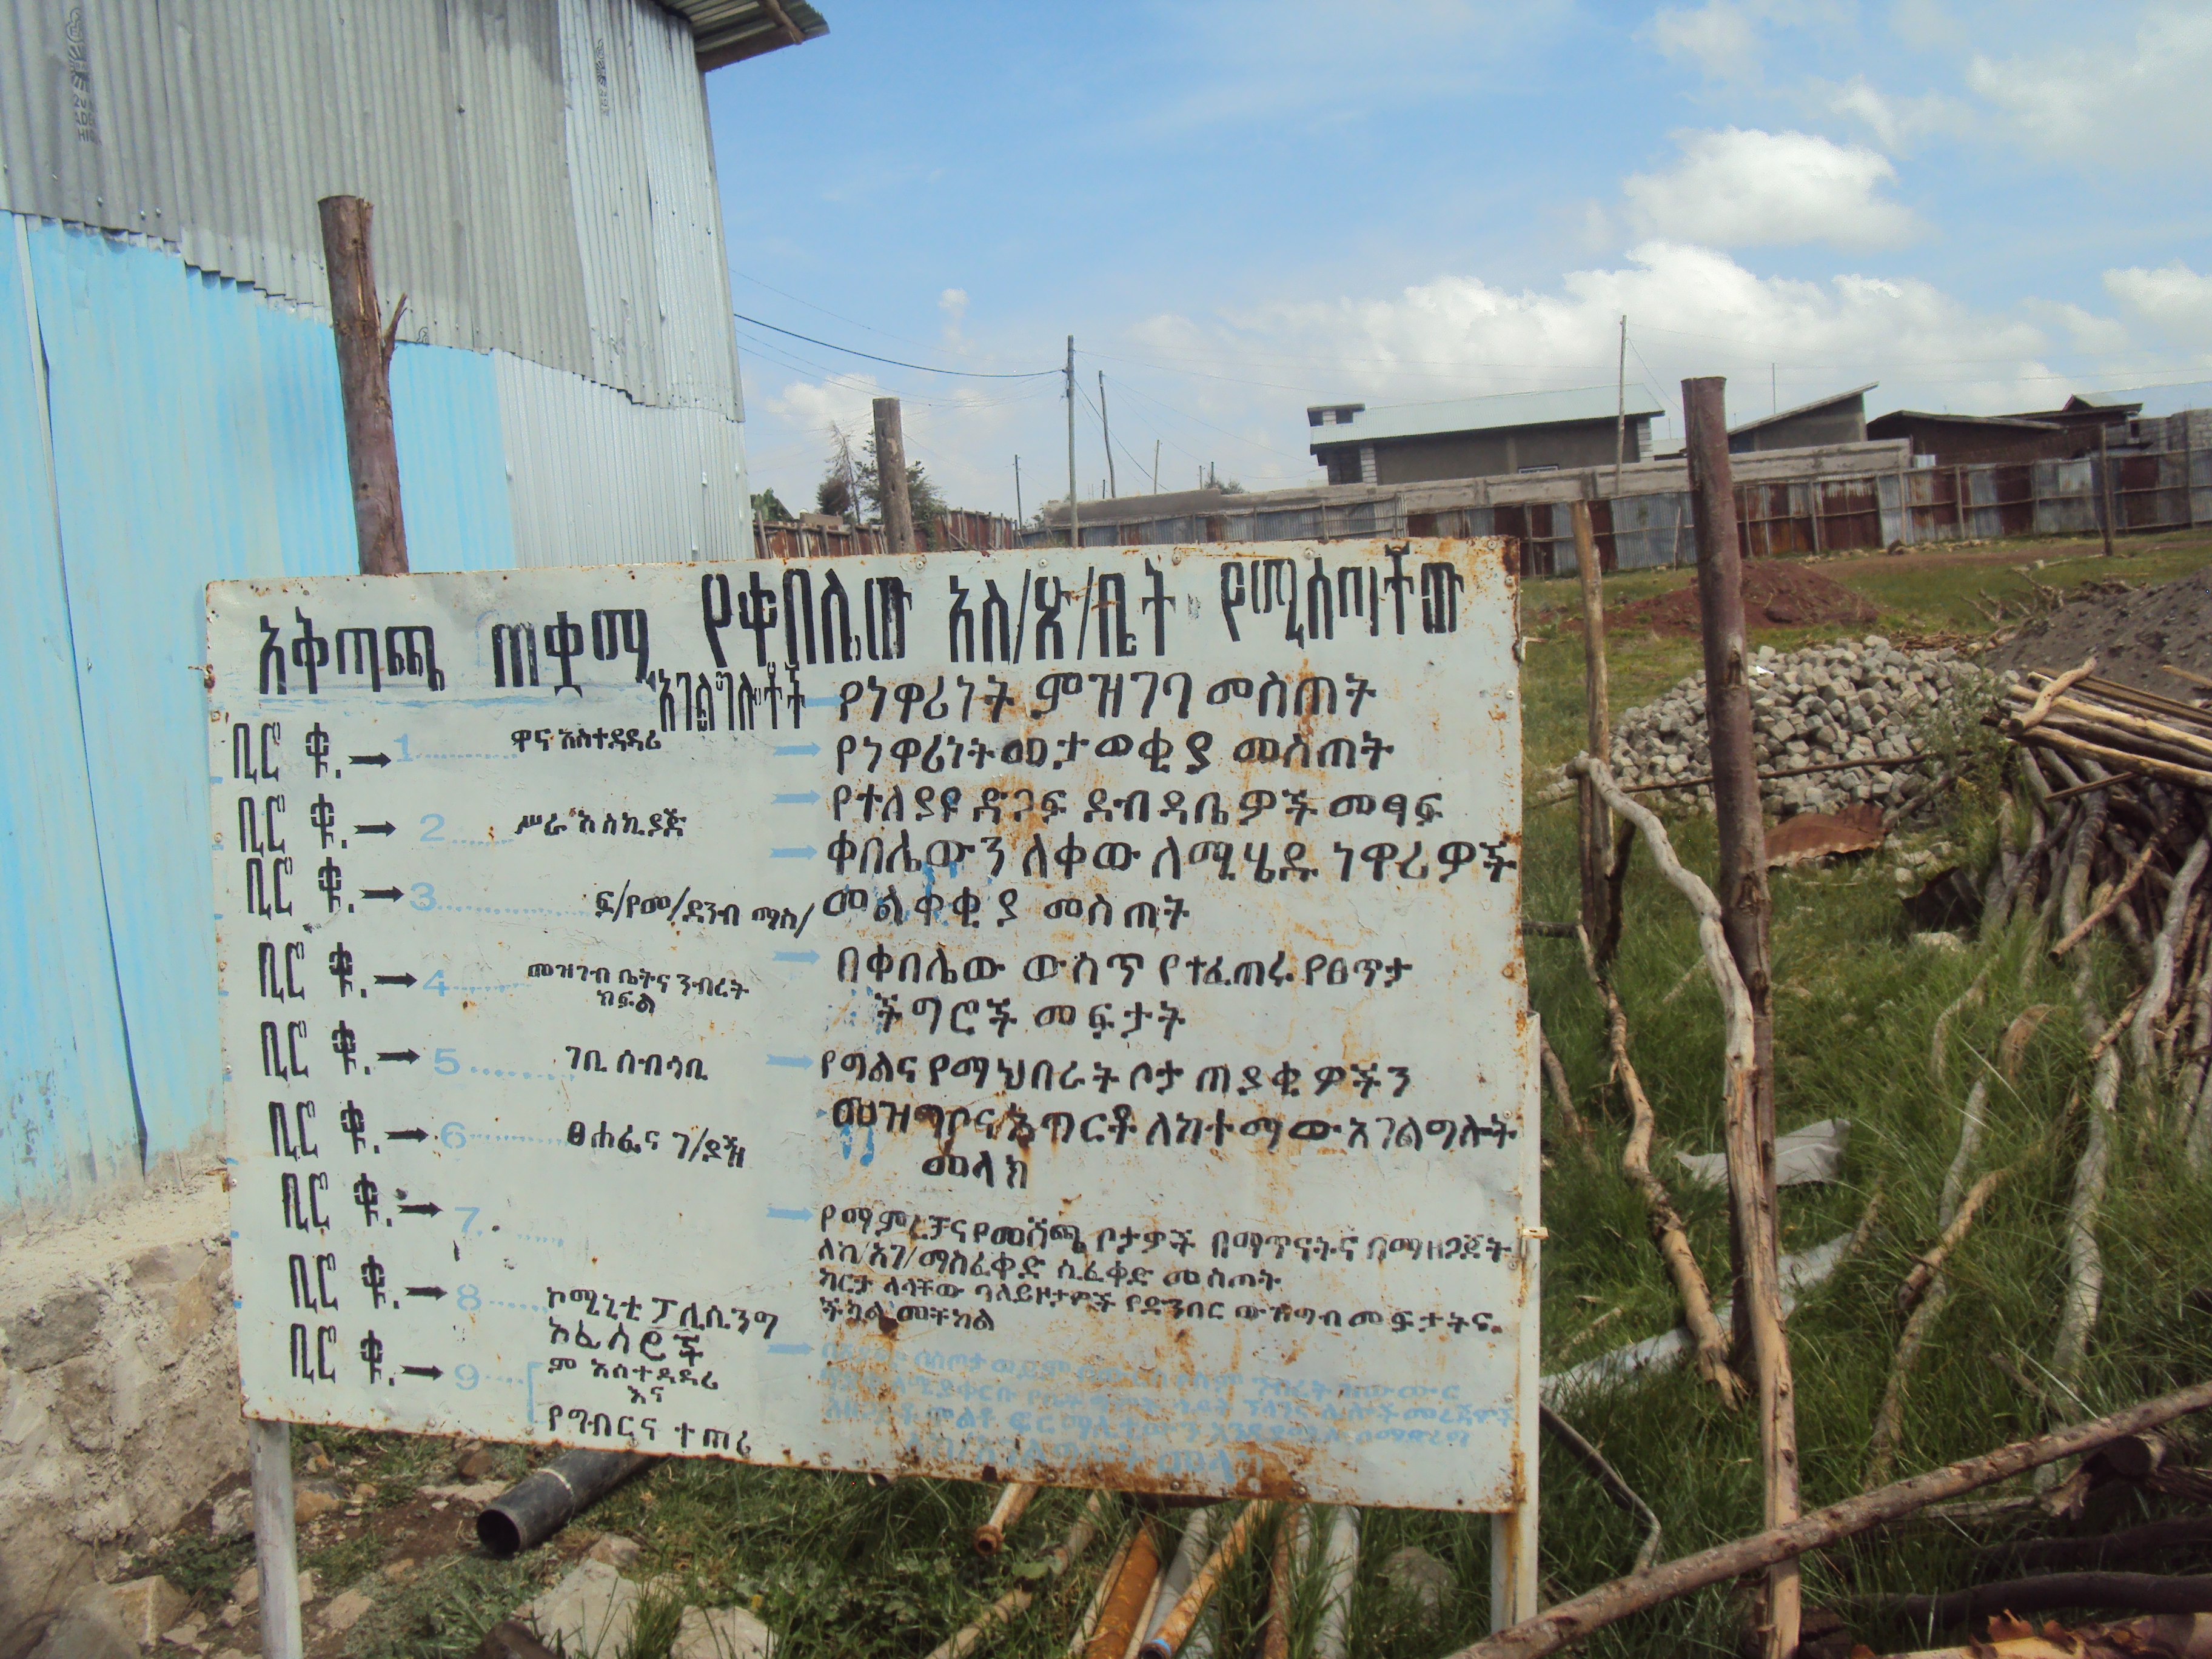 አቅጣጫ ጠቋሚ
ቢሮ ቁ. 1 ዋና አስተዳዳሪ
ቢሮ ቁ. 2 ሥራ አስኪያጅ
ቢሮ ቁ. 3 ፍ/የመ/ደንብ ማስ/
ቢሮ ቁ. 4 መዝገብ ቤትና ንብረት
ክፍል
ቢሮ ቁ. 5 ገቢ ሰብሳቢ
ቢሮ ቁ. 6 ፀሐፊና ገ/ያዥ
ቢሮ ቁ. 7
ቢሮ ቁ. 8 ኮሚኒቲ ፖሊሲንግ
ኦፊሰሮች
ቢሮ ቁ. 9 ም አስተዳዳሪ
እና
የግብርና ተጠሪ
የቀበሌው አስ/ጽ/ቤት የሚሰጣቸው
አገልግሎቶች
የነዋሪነት ምዝገባ መስጠት
የነዋሪነት መታወቂያ መስጠት
የተለያዩ ድጋፍ ደብዳቤዎች መፃፍ
ቀበሌውን ለቀው ለሚሄዱ ነዋሪዎች
መልቀቂያ መስጠት
በቀበሌው ውስጥ የተፈጠሩ የፀጥታ
ችግሮች መፍታት
የግልና የማህበራት ቦታ ጠያቂዎችን
መዝግቦና አጥርቶ ለከተማው አገልግሎት
መላክ
የማምረቻና የመሸጫ ቦታዎች በማጥናትና በማዘጋጀት
ለከ/አገ/ማስፈቀድ ሲፈቀድ መስጠት
ካርታ ላላቸው ባለይዞታዎች የዳንበር ውዝግብ መፍታትና
ችካል መቸከል